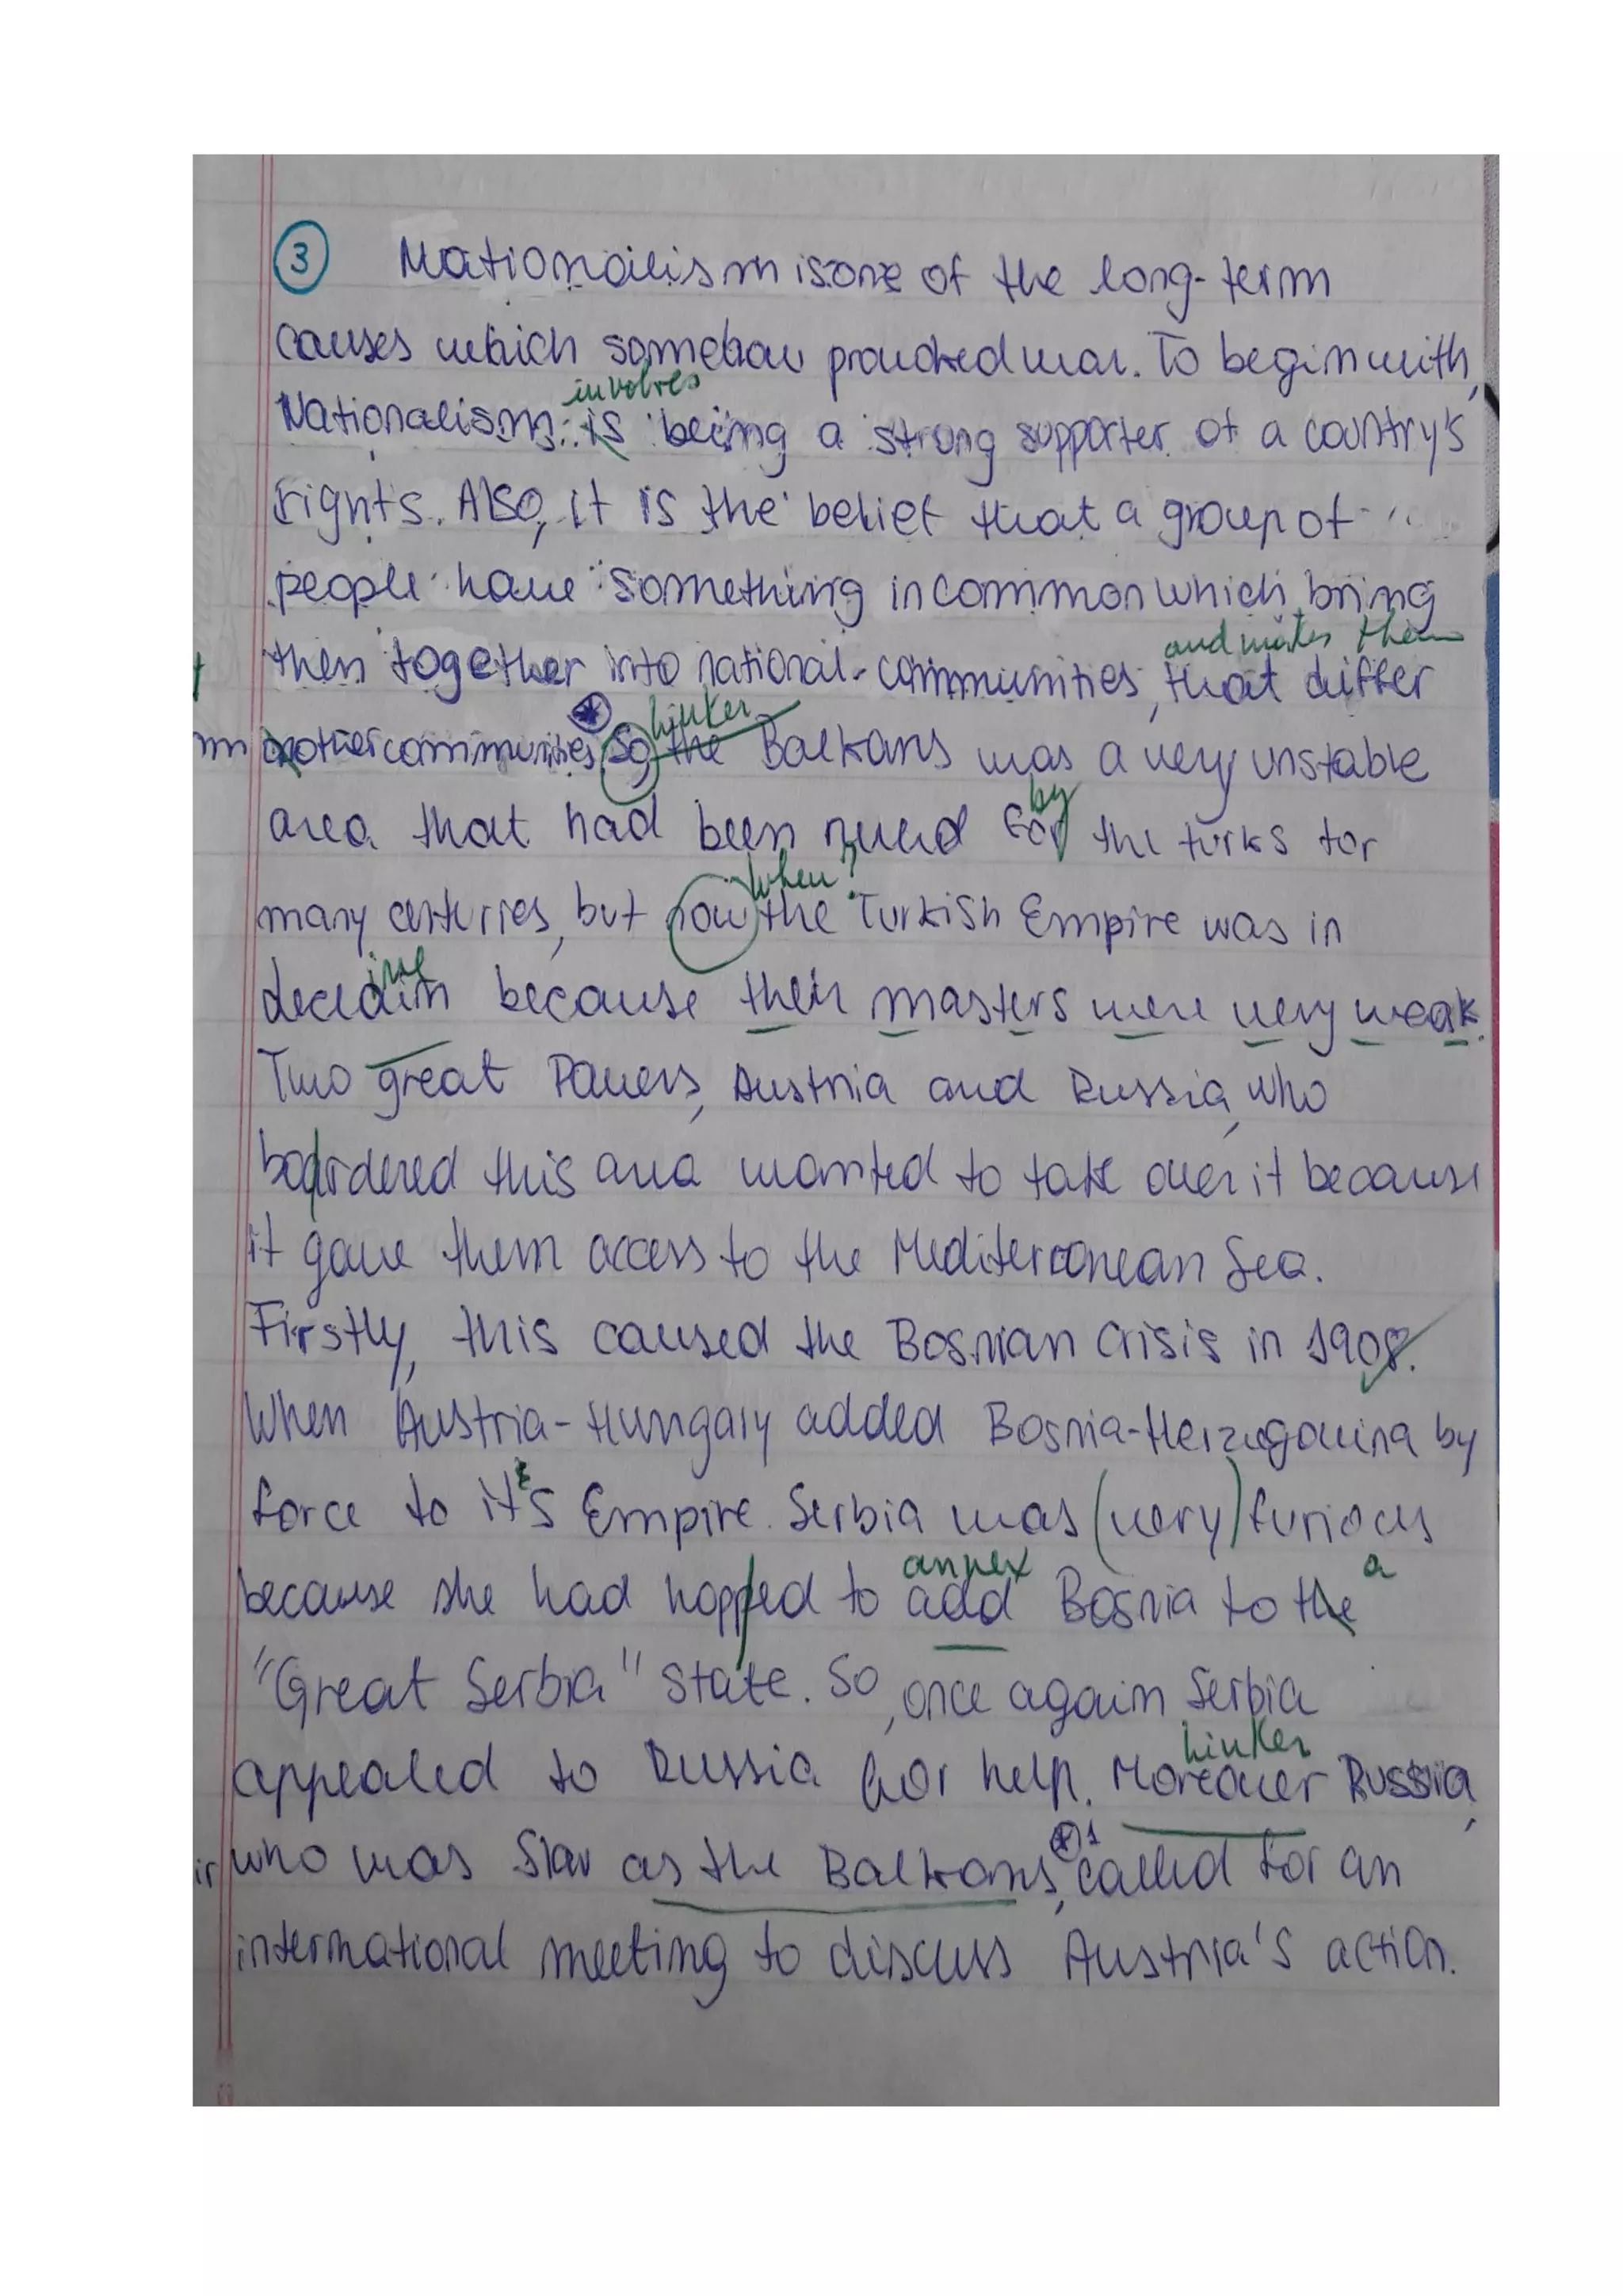 3 Nationalism is one of the long-term
causes which somehow provoked war. To begin with,
involves
Nationalism is being a strong supporter of a country's
rights. Also, it is the belief that a group of
people have something in common which bring
and makes them
then together into national-communities, that differ
other communities. So the Balkans was a very unstable
linker
by
area that had been ruled for the turks for
when?
many centuries, but now the Turkish Empire was in
ine
because their masters were very weak.
Two great Powers, Austria and Russia, who
bordered this area wanted to take over it because
it gave them access to the Mediterranean Sea.
Firstly, this caused the Bosnian Crisis in 1908.
When Austria-Hungary added Bosnia-Herzegovina by
force to it's Empire. Serbia was (very) furious
annex a
because she had hopped to add Bosnia to the
"Great Serbia" state. So, once again Serbia
linker
appealed to Russia for help. Moreover Russia,
1
who was Slav as the Balkans, called for an
international meeting to discuss Austria's action.